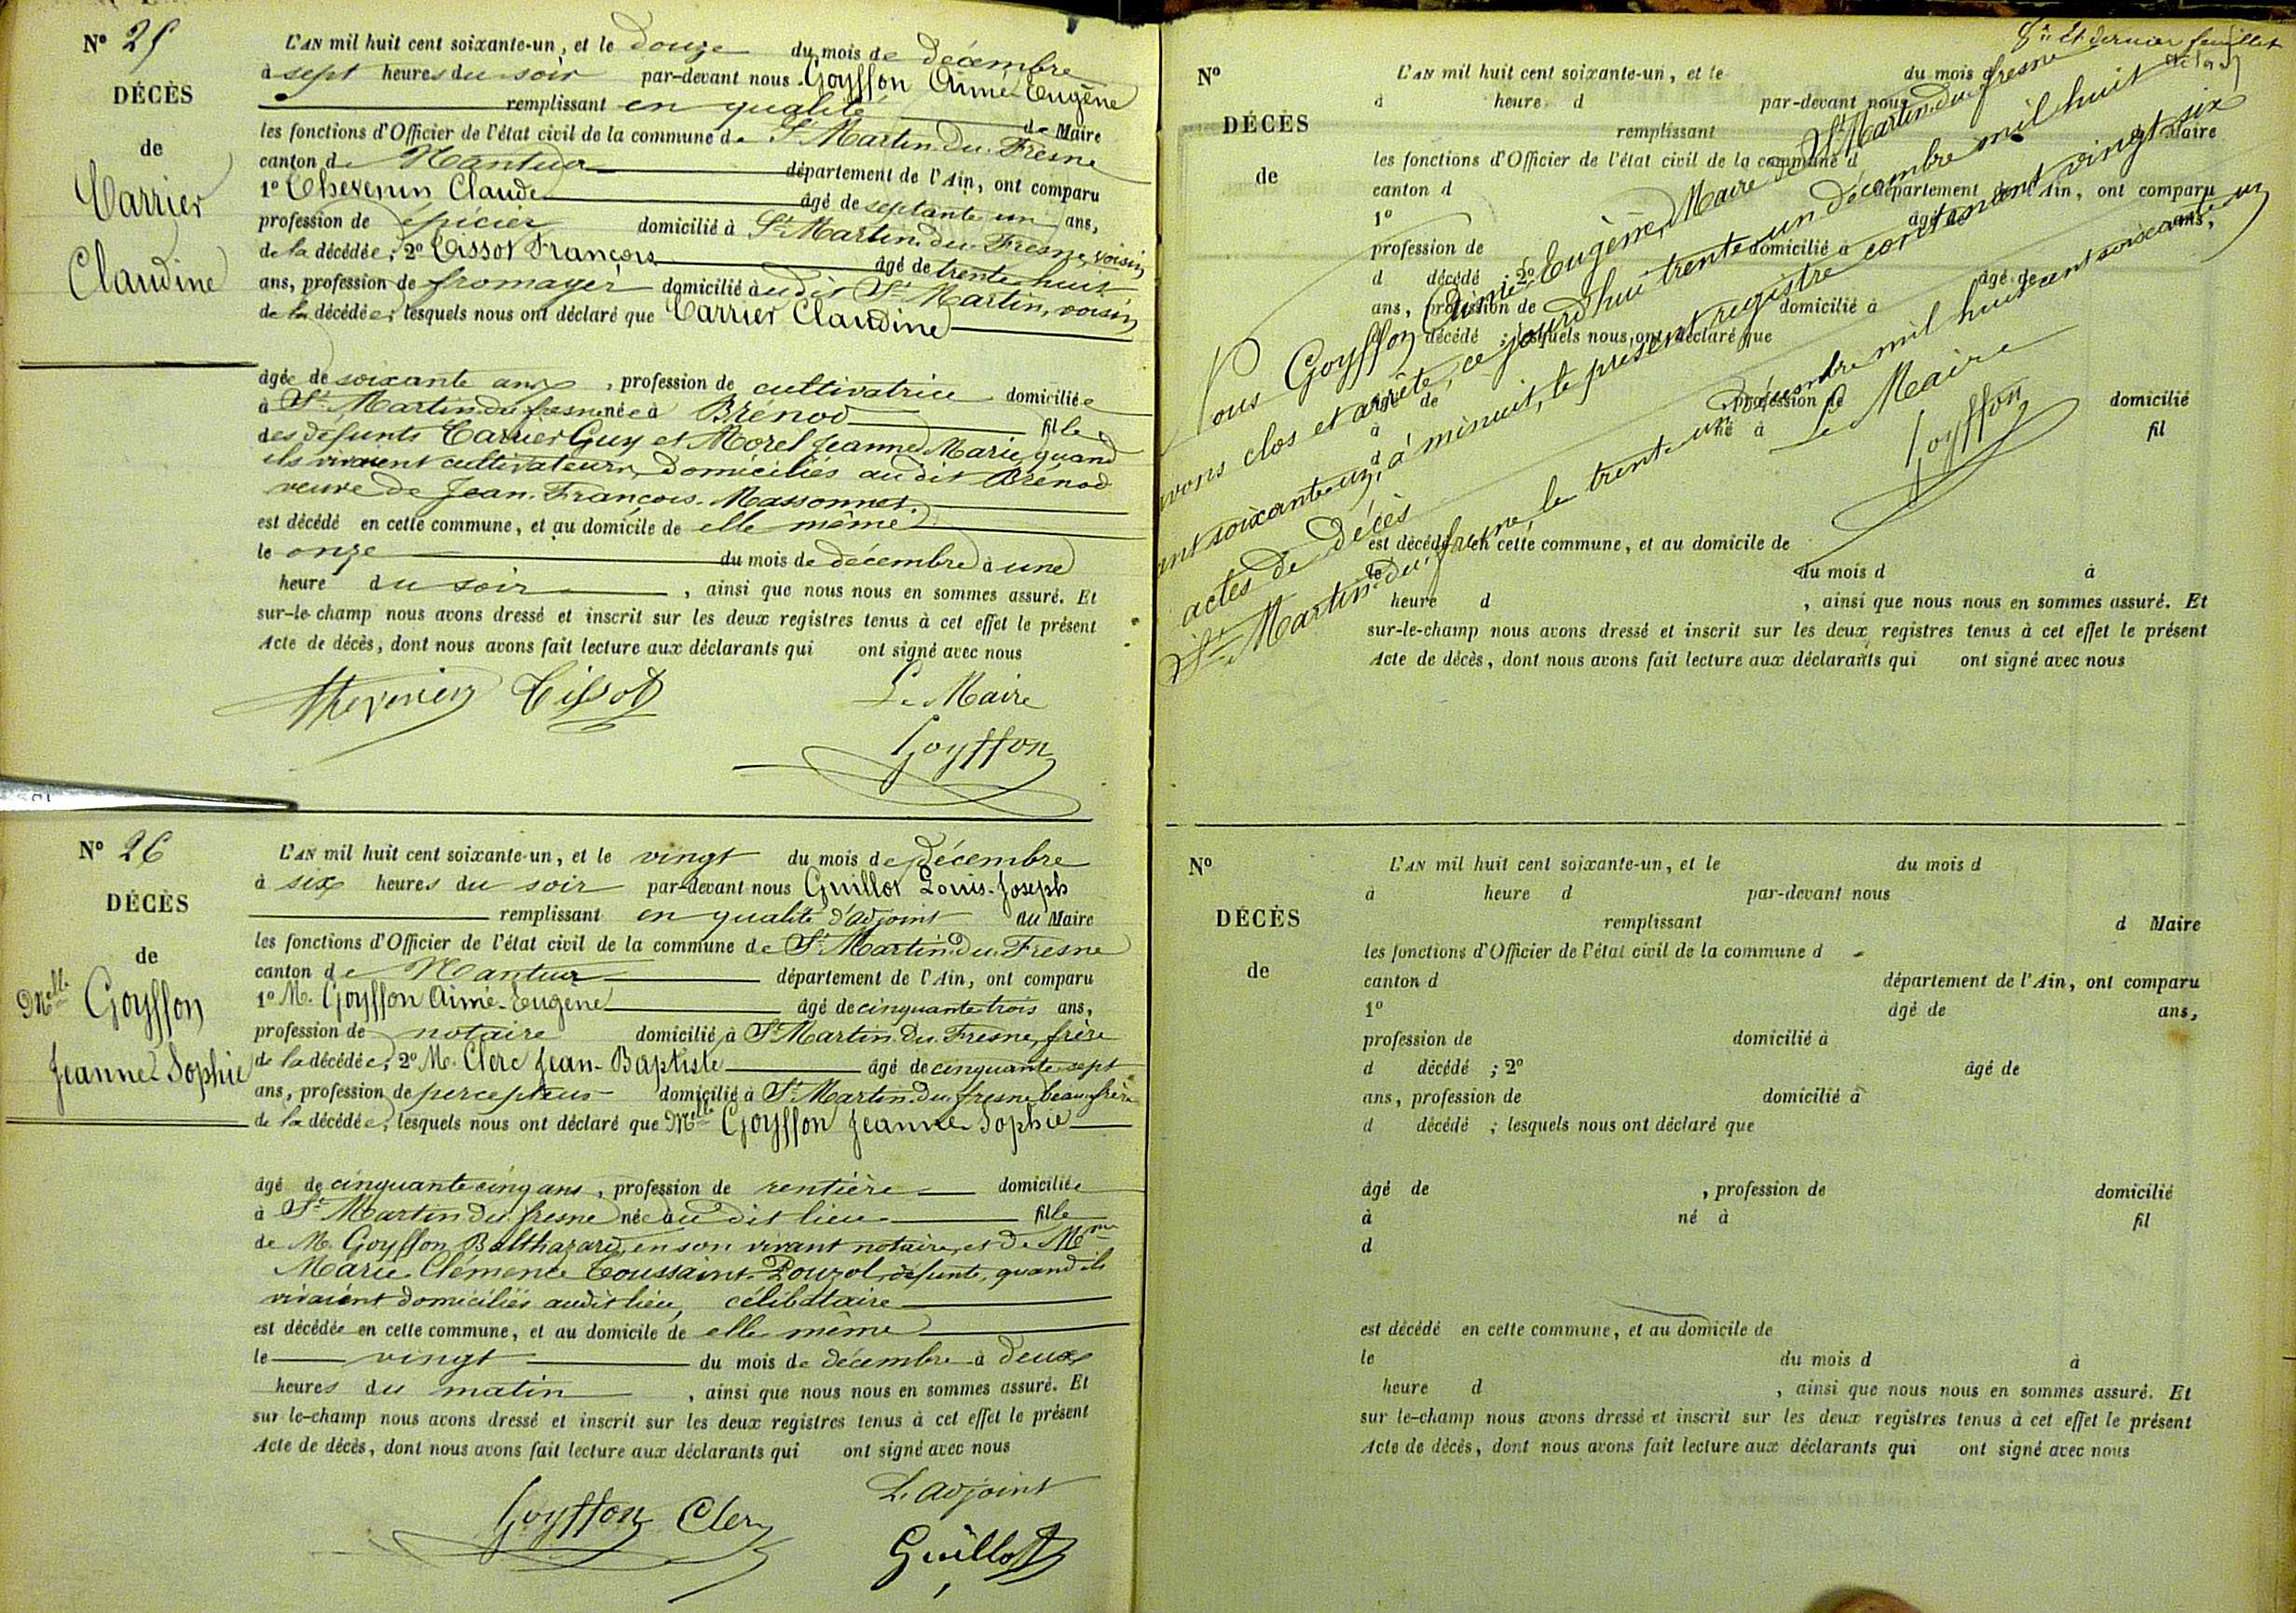 N° 25
DÉCÈS
de
Carrier
Claudine
L'AN mil huit cent soixante-un, et le douze du mois de décembre
à sept heures du soir par-devant nous Goyffon Aimé-Eugène
remplissant en qualité de Maire
les fonctions d'Officier de l'état civil de la commune de St Martin-du-Fresne
canton de Nantua département de l'Ain, ont comparu
1° Thevenin Claude âgé de septante un ans,
profession de épicier domicilié à St Martin-du-Fresne, voisin
de la décédée; 2° Tissot François âgé de trente huit
ans, profession de fromager domicilié audit St Martin, voisin
de la décédée; lesquels nous ont déclaré que Carrier Claudine
âgée de soixante ans, profession de cultivatrice domiciliée
à St Martin du fresne née à Brénod fille
des défunts Carrier Guy et Morel Jeanne Marie, quand
ils vivaient cultivateurs, domiciliés audit Brénod
veuve de Jean-François Massonnet.
est décédé en cette commune, et au domicile de elle même
le onze du mois de décembre à une
heure du soir, ainsi que nous nous en sommes assuré. Et
sur-le-champ nous avons dressé et inscrit sur les deux registres tenus à cet effet le présent
Acte de décès, dont nous avons fait lecture aux déclarants qui ont signé avec nous
Thevenin Tissot Le Maire
Goyffon
N° 26
DÉCÈS
de
Melle Goyffon
Jeanne-Sophie
L'AN mil huit cent soixante-un, et le vingt du mois de décembre
à six heures du soir par-devant nous Guillot Louis-Joseph
remplissant en qualité d'adjoint au Maire
les fonctions d'Officier de l'état civil de la commune de St Martin-du-Fresne
canton de Nantua département de l'Ain, ont comparu
1° M. Goyffon Aimé-Eugène âgé de cinquante trois ans,
profession de notaire domicilié à St Martin-du-Fresne, frère
de la décédée; 2° M. Clerc Jean-Baptiste âgé de cinquante sept
ans, profession de percepteur domicilié à St Martin-du-fresne beau-frère
de la décédée; lesquels nous ont déclaré que Melle Goyffon Jeanne Sophie
âgé de cinquante cinq ans, profession de rentière domiciliée
à St Martin-du-fresne née audit lieu fille
de M. Goyffon Balthazard, en son vivant notaire, et de Mme
Marie Clémence Toussaint-Pouzol, défunte, quand ils
vivaient domiciliés audit lieu, célibataire
est décédée en cette commune, et au domicile de elle même
le vingt du mois de décembre à deux
heures du matin, ainsi que nous nous en sommes assuré. Et
sur-le-champ nous avons dressé et inscrit sur les deux registres tenus à cet effet le présent
Acte de décès, dont nous avons fait lecture aux déclarants qui ont signé avec nous
Goyffon Clerc L'adjoint
Guillot
et dernier feuillet
N°
DÉCÈS
de
L'AN mil huit cent soixante-un, et le du mois d
à heure d par-devant nous
remplissant d Maire
les fonctions d'Officier de l'état civil de la commune d
canton d département de l'Ain, ont comparu
1° âgé de ans,
profession de domicilié à
d décédé ; 2° âgé de
ans, profession de domicilié à
d décédé ; lesquels nous ont déclaré que
âgé de , profession de domicilié
à né à fil
d
est décédé en cette commune, et au domicile de
le du mois d à
heure d , ainsi que nous nous en sommes assuré. Et
sur-le-champ nous avons dressé et inscrit sur les deux registres tenus à cet effet le présent
Acte de décès, dont nous avons fait lecture aux déclarants qui ont signé avec nous
Nous Goyffon Aimé-Eugène, Maire de St Martin-du-fresne
avons clos et arrêté, ce jourd'hui trente-un décembre mil huit
cent soixante-un, à minuit, le présent registre contenant vingt six
actes de décès
St Martin-du-fresne, le trente un décembre mil huit cent soixante un
Le Maire
Goyffon
N°
DÉCÈS
de
L'AN mil huit cent soixante-un, et le du mois d
à heure d par-devant nous
remplissant d Maire
les fonctions d'Officier de l'état civil de la commune d
canton d département de l'Ain, ont comparu
1° âgé de ans,
profession de domicilié à
d décédé ; 2° âgé de
ans, profession de domicilié à
d décédé ; lesquels nous ont déclaré que
âgé de , profession de domicilié
à né à fil
d
est décédé en cette commune, et au domicile de
le du mois d à
heure d , ainsi que nous nous en sommes assuré. Et
sur le-champ nous avons dressé et inscrit sur les deux registres tenus à cet effet le présent
Acte de décès, dont nous avons fait lecture aux déclarants qui ont signé avec nous